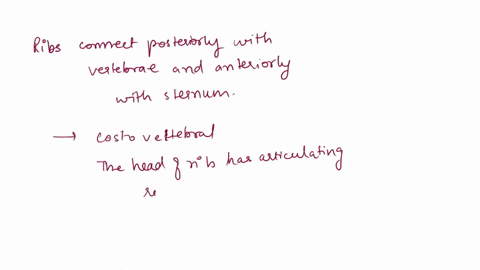 Ribs connect posteriorly with
vertebrae and anteriorly
with sternum.
→ Costovertebral
The head of rib has articulating